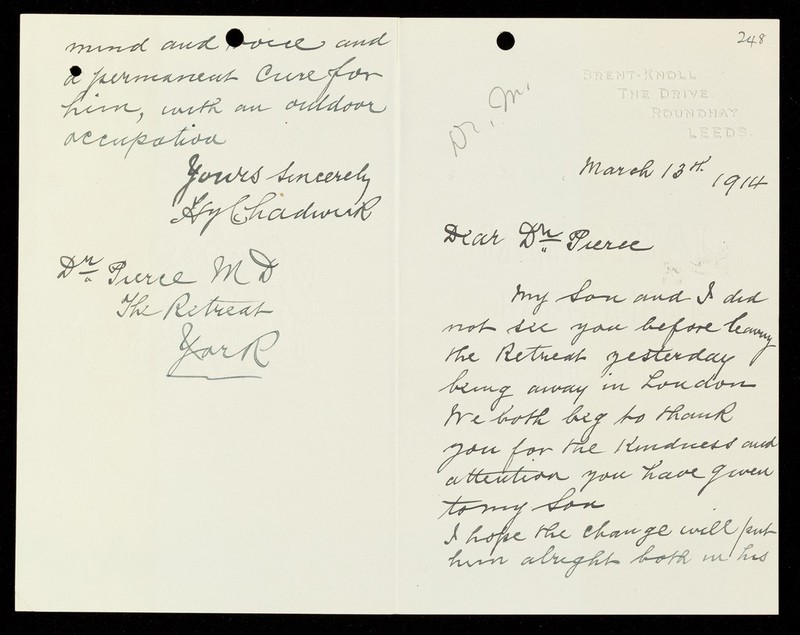 248
Dr. M.
BRENT-KNOLL
THE DRIVE
ROUNDHAY
LEEDS.
March 13th 1914
Dear Dr. Pierce
My Son and I did
not see you before leaving
the Retreat yesterday
being away in London
We both beg to thank
you for the kindness and
attention you have given
to my Son
I hope the change will put
him alright both in his
mind and voice and
a permanent Cure for
him, with an outdoor
occupation
Yours sincerely
Hy Chadwick
Dr. Pierce M D
The Retreat
York